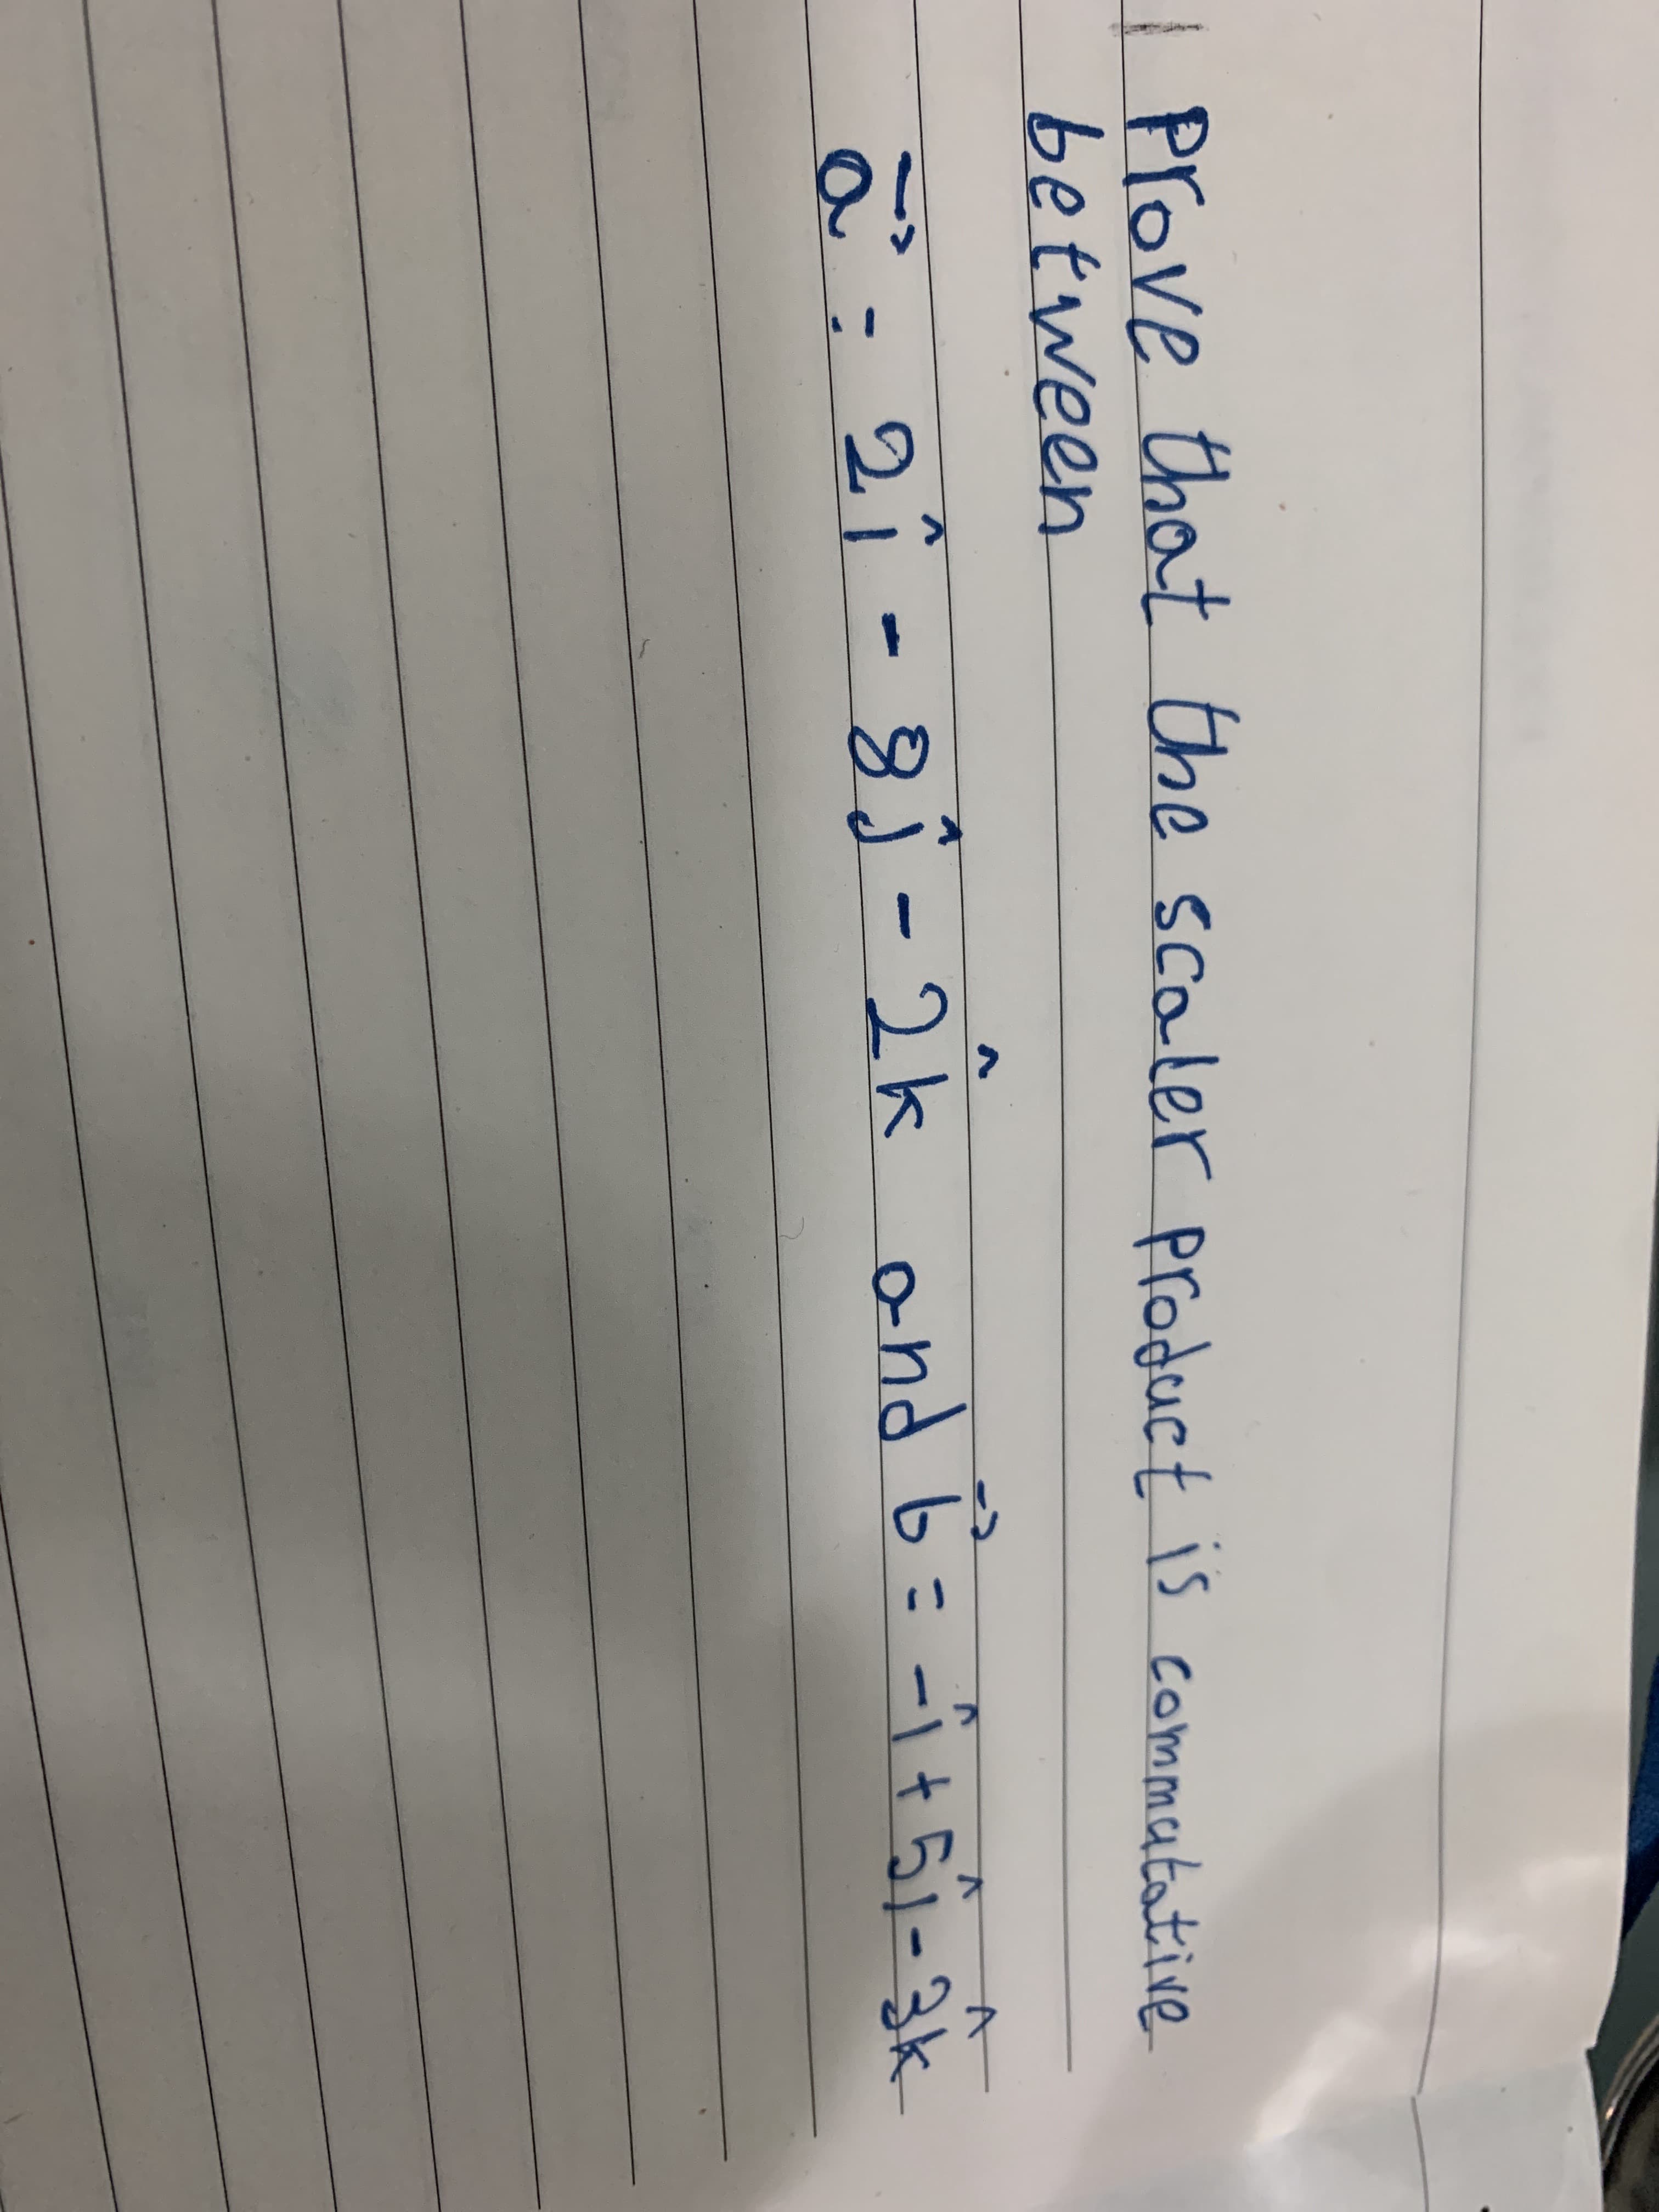 Prove that the scaler product is commutative
between
a⃗ = 2î - 8ĵ - 2k̂ and b⃗ = -î + 5ĵ - 3k̂